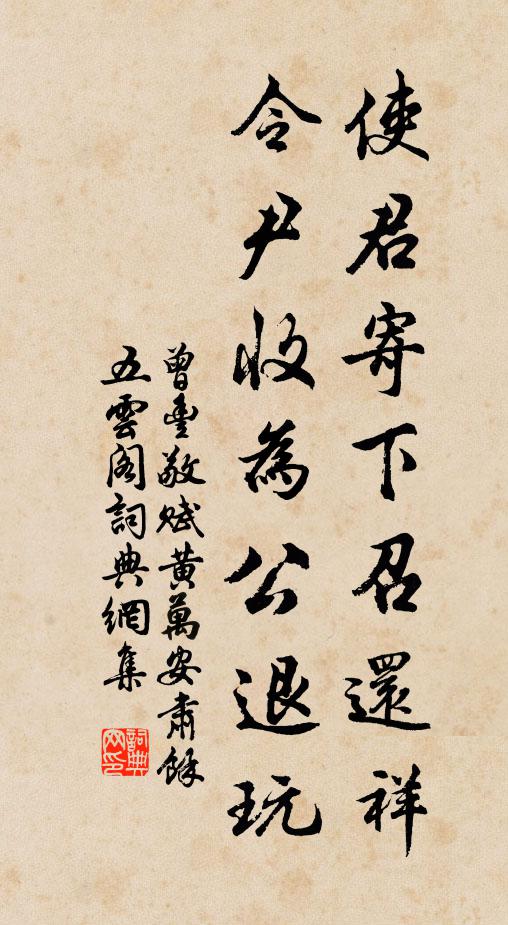 使君寄下召還祥
令尹收為公退玩
曾豊敬賦黃萬安肅餘
五雲閣詞典網集
詞典
网印